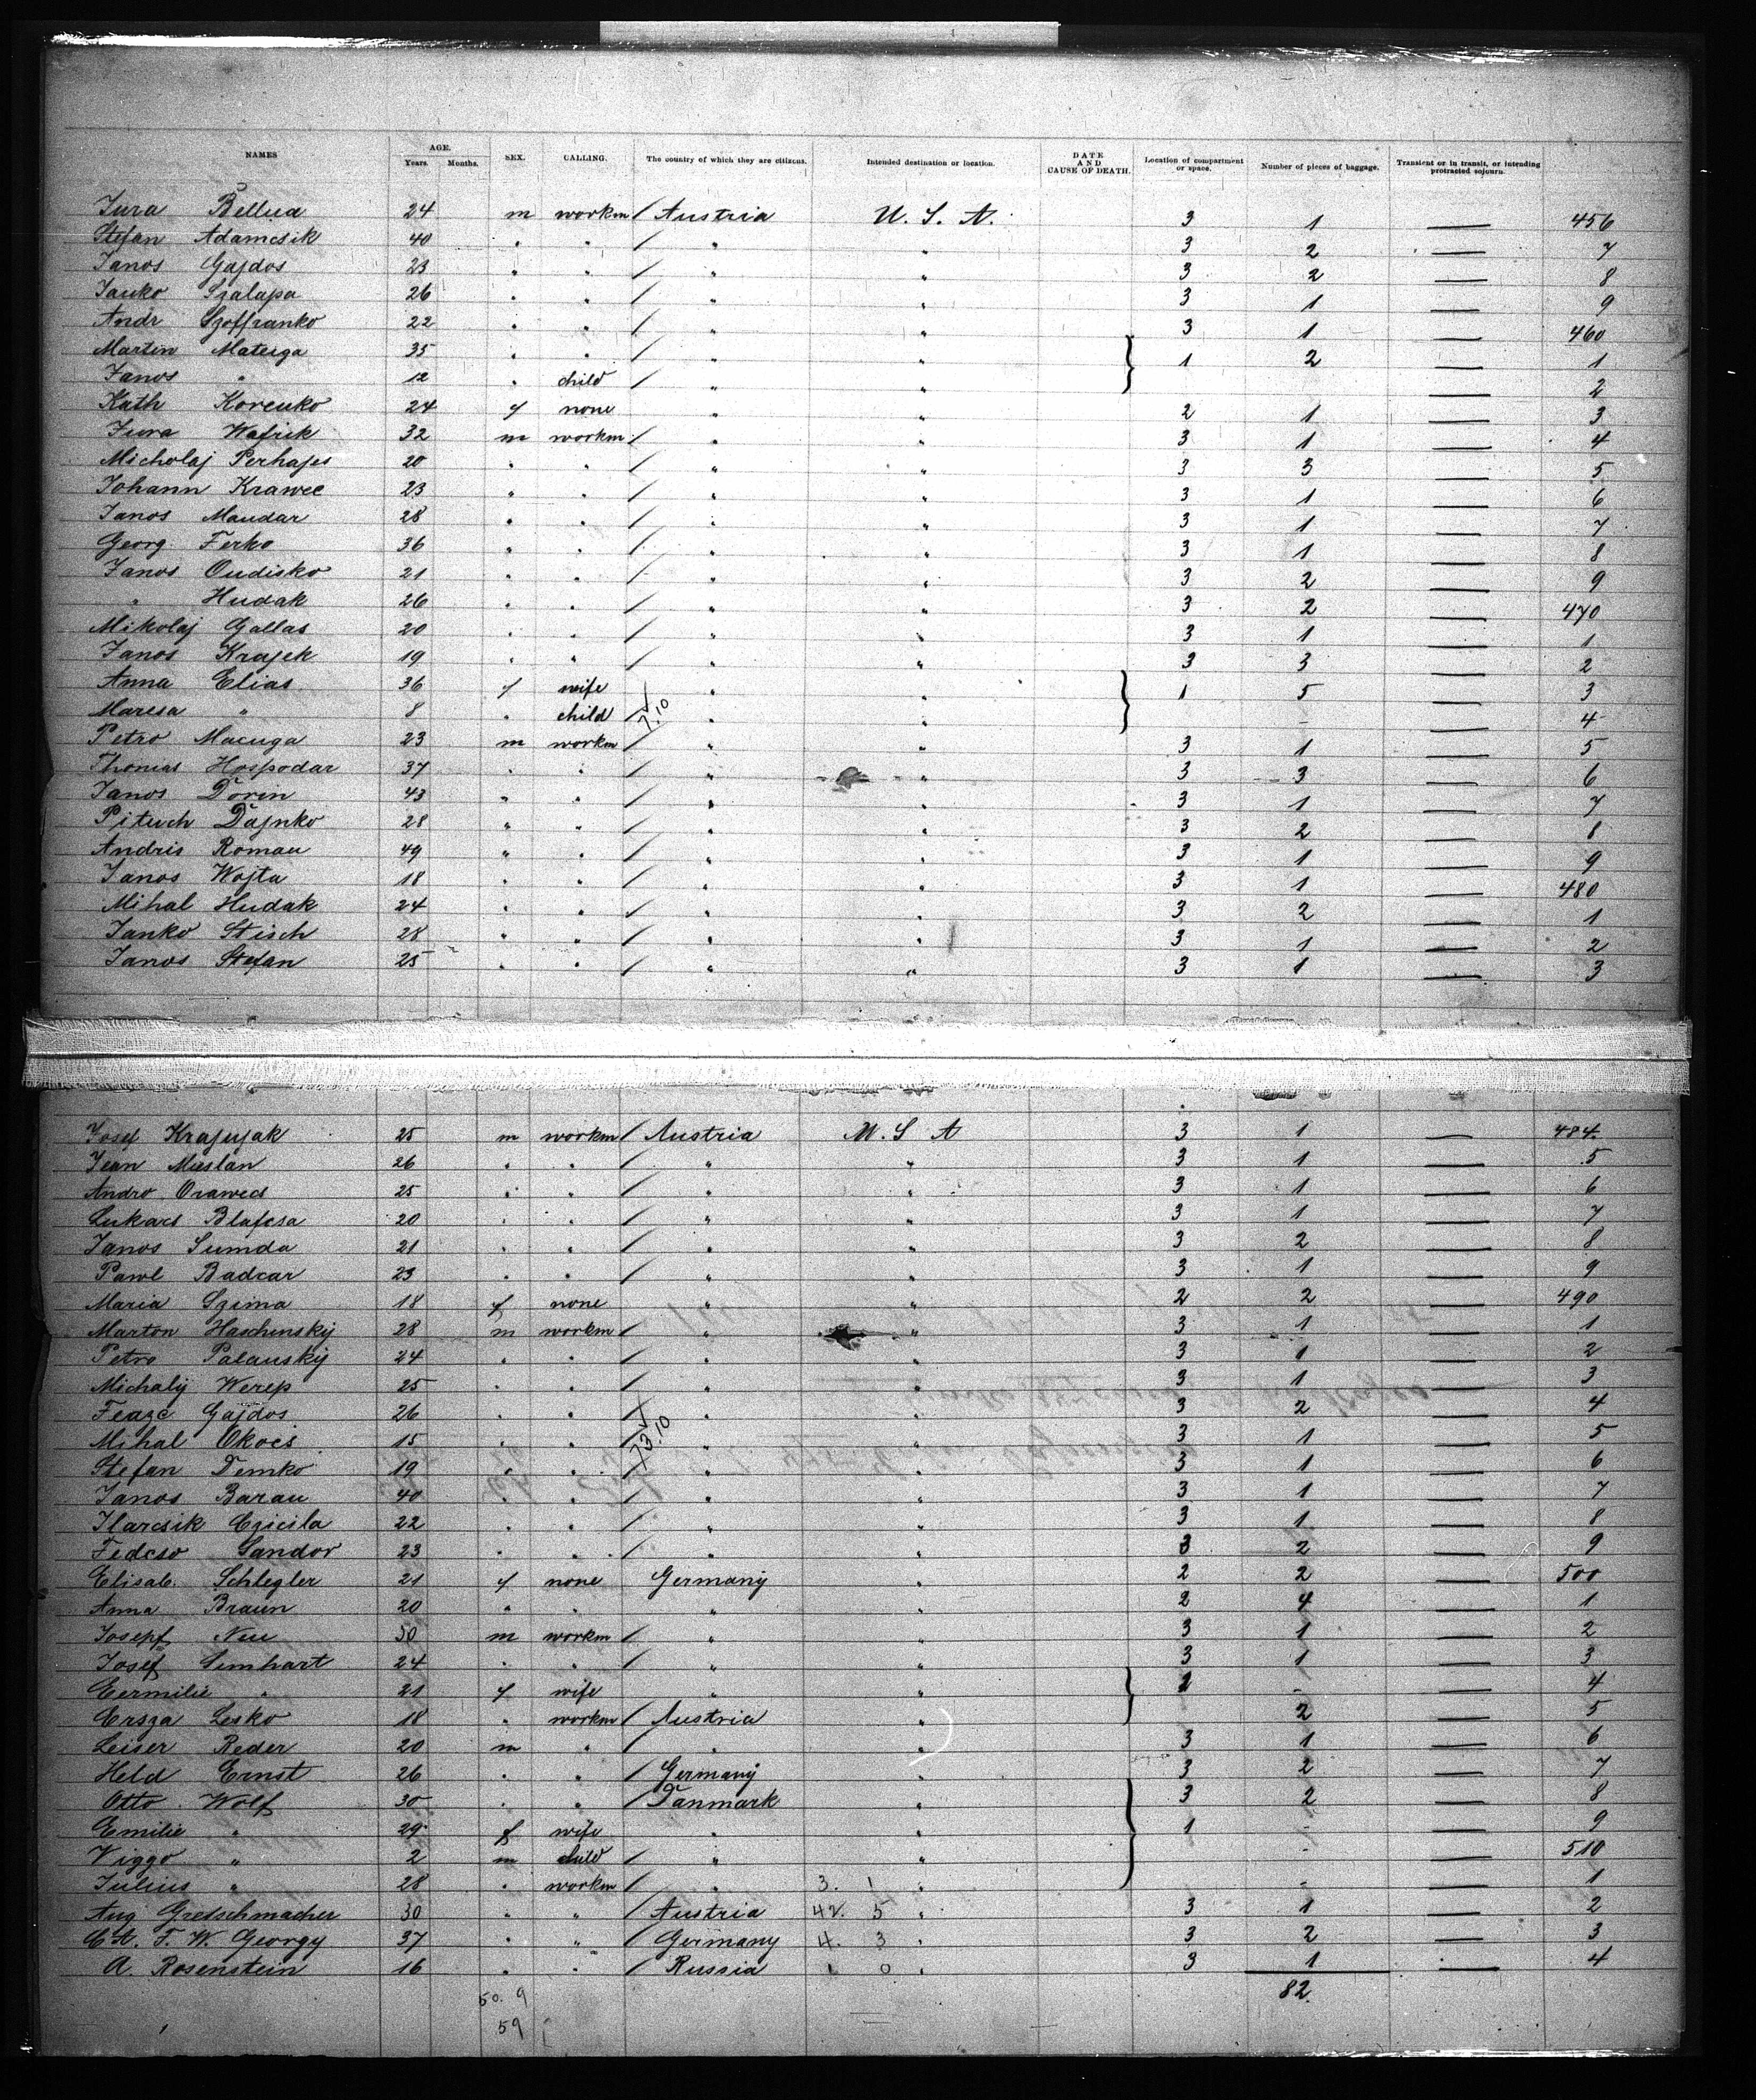 NAMES AGE. Years. Months. SEX. CALLING. The country of which they are citizens. Intended destination or location. DATE AND CAUSE OF DEATH. Location of compartment or space. Number of pieces of baggage. Transient or in transit, or intending protracted sojourn.
Jura Bellua 24 m workm / Austria U. S. A. 3 1 — 456
Stefan Adamcsik 40 " " / " " 3 2 — 7
Janos Gajdos 23 " " / " " 3 2 — 8
Janko Szalapa 26 " " / " " 3 1 — 9
Andr Szoffranko 22 " " / " " 3 1 — 460
Martin Mateiga 35 " " / " " 1 2 — 1
Janos " 12 " child / " " — 2
Kath Korenko 24 f none " " 2 1 — 3
Jura Wafrik 32 m workm / " " 3 1 — 4
Micholaj Perhajes 20 " " / " " 3 3 — 5
Johann Krawec 23 " " / " " 3 1 — 6
Janos Mandar 28 " " / " " 3 1 — 7
Georg. Ferko 36 " " / " " 3 1 — 8
Janos Oudisko 21 " " / " " 3 2 — 9
" Hudak 26 " " / " " 3 2 — 470
Mikolaj Gallas 20 " " / " " 3 1 — 1
Janos Krajek 19 " " / " " 3 3 — 2
Anna Elias 36 f wife " " 1 5 — 3
Maresa " 8 " child / 7.10 " " - — 4
Petro Macuga 23 m workm / " " 3 1 — 5
Thomas Hospodar 37 " " / " " 3 3 — 6
Janos Dorin 43 " " / " " 3 1 — 7
Pituch Dajnko 28 " " / " " 3 2 — 8
Andris Roman 49 " " / " " 3 1 — 9
Janos Wojta 18 " " / " " 3 1 — 480
Mihal Hudak 24 " " / " " 3 2 — 1
Janko Stisch 28 " " / " " 3 1 — 2
Janos Stefan 25 " " / " " 3 1 — 3
Josef Krajujak 25 m workm / Austria U. S A 3 1 — 484
Jean Mieslan 26 " " / " " 3 1 — 5
Andro Orawecs 25 " " / " " 3 1 — 6
Lukacs Blafcsa 20 " " / " " 3 1 — 7
Janos Sumda 21 " " / " " 3 2 — 8
Pawl Badcar 23 " " / " " 3 1 — 9
Maria Szima 18 f none " " 2 2 — 490
Marton Haschinskij 28 m workm / " " 3 1 — 1
Petro Palanskij 24 " " / " " 3 1 — 2
Michalij Werep 25 " " / " " 3 1 — 3
Gajdos 26 " " / " " 3 2 — 4
Mihal Okocs 15 " " / 73.10 " " 3 1 — 5
Stefan Demko 19 " " / " " 3 1 — 6
Janos Baran 40 " " / " " 3 1 — 7
Ilarcsik Czicila 22 " " / " " 3 1 — 8
Fedcso Sandor 23 " " / " " 3 2 — 9
Elisab. Schlegler 21 f none Germany " 2 2 — 500
Anna Braun 20 " " " " 2 4 — 1
Josepf Neu 50 m workm / " " 3 1 — 2
Josef Simhart 24 " " / " " 3 1 — 3
Eermilie " 21 f wife " " 1 - — 4
Ersza Lesko 18 " workm / Austria " 2 — 5
Leiser Reder 20 m " / " " 3 1 — 6
Held Ernst 26 " " / Germany " 3 2 — 7
Otto Wolf 30 " " / Danmark " 3 2 — 8
Emilie " 29 f wife " " 1 - — 9
Viggo " 2 m child / " " - — 510
Julius " 28 " workm / " 3. 1 " - — 1
Aug Gretschmacher 30 " " / Austria 42. 5 " 3 1 — 2
C A. F. W. Georgy 37 " " / Germany 4. 3 " 3 2 — 3
A. Rosenstein 16 " " / Russia 1 0 " 3 1 — 4
50. 9 82.
59